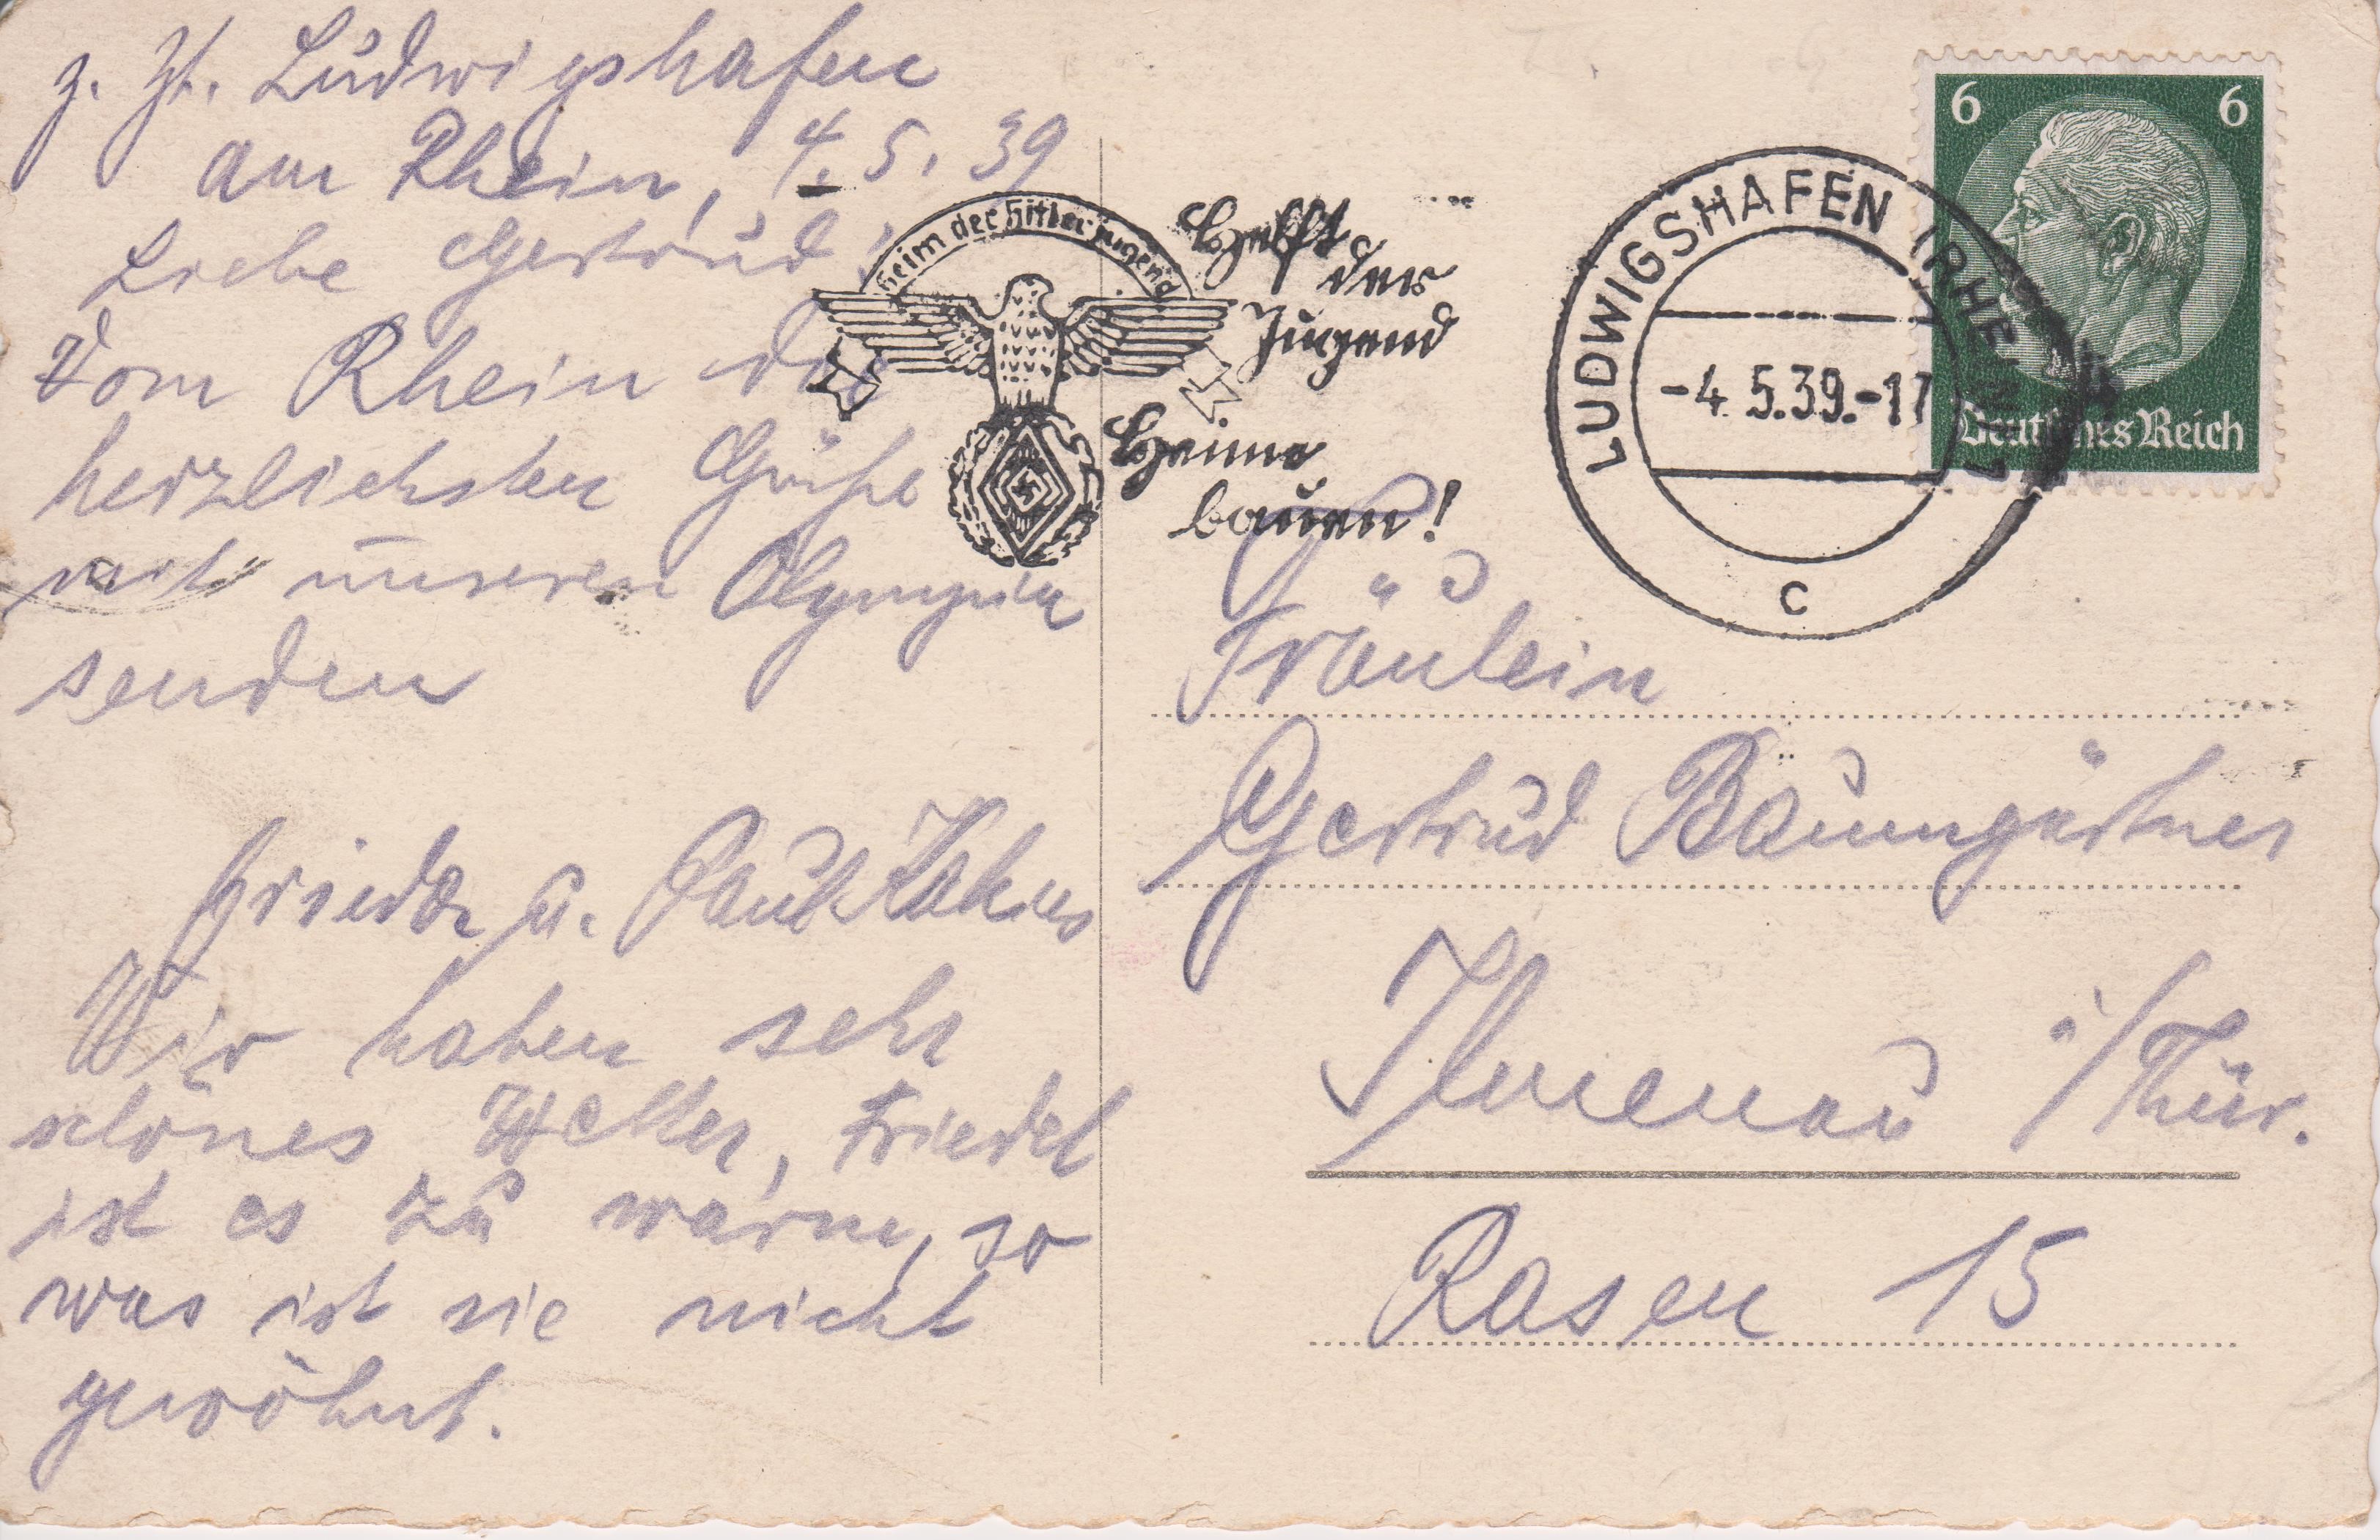 z. Zt. Ludwigshafen
am Rhein, 4.5.39
Liebe Gertrud!
Vom Rhein die
herzlichsten Grüße
mit unseren Olympia
senden
Friedel u. Paul
Wir haben sehr
schönes Wetter, Friedel
ist es zu warm, so
was ist sie nicht
gewöhnt.
Heim der Hitlerjugend
Helft
der
Jugend
Heime
bauen!
LUDWIGSHAFEN (RHEIN) 1
-4.5.39.-17
c
6 6
Deutsches Reich
Fräulein
Gertrud Baumgärtner
Ilmenau i/Thür.
Rasen 15